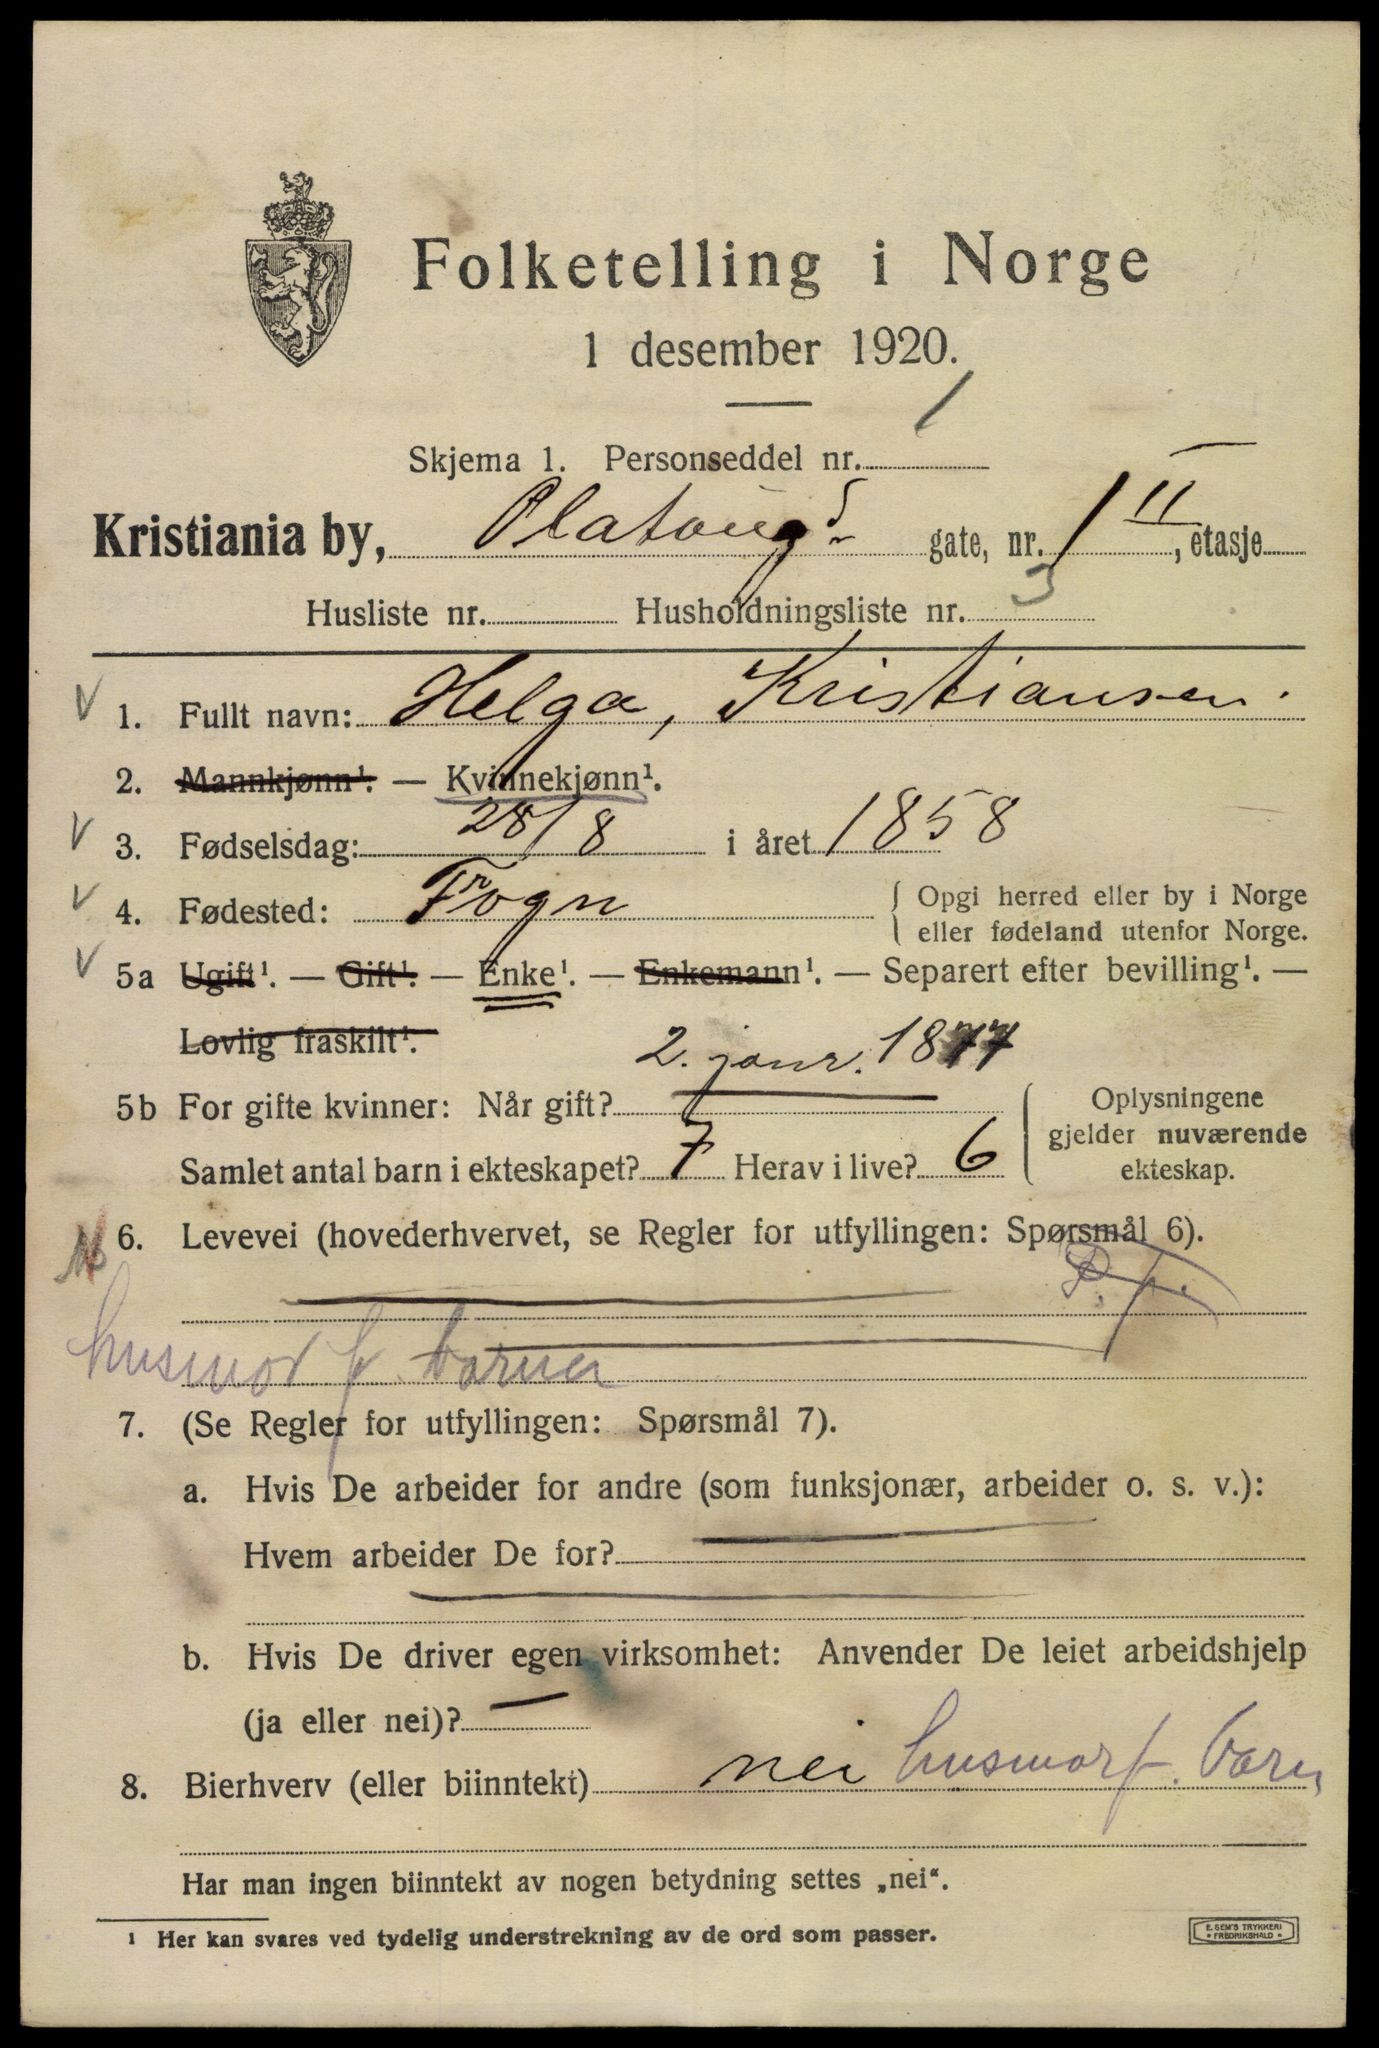 Folketelling i Norge
1 desember 1920.
Skjema 1. Personseddel nr. 1
Kristiania by, Platougs gate, nr. 1 II, etasje
Husliste nr. Husholdningsliste nr. 3
1. Fullt navn: Helga, Kristiansen.
2. Mannkjønn¹. — Kvinnekjønn¹.
3. Fødselsdag: 28/8 i året 1858
4. Fødested: Frogn { Opgi herred eller by i Norge
eller fødeland utenfor Norge.
5a Ugift¹. — Gift¹. — Enke¹. — Enkemann¹. — Separert efter bevilling¹. —
Lovlig fraskilt¹.
5b For gifte kvinner: Når gift? 2. janr. 1877
Samlet antal barn i ekteskapet? 7 Herav i live? 6
{ Oplysningene
gjelder nuværende
ekteskap.
6. Levevei (hovederhvervet, se Regler for utfyllingen: Spørsmål 6).
P. f.
husmor f. barna
7. (Se Regler for utfyllingen: Spørsmål 7).
a. Hvis De arbeider for andre (som funksjonær, arbeider o. s. v.):
Hvem arbeider De for?
b. Hvis De driver egen virksomhet: Anvender De leiet arbeidshjelp
(ja eller nei)? —
8. Bierhverv (eller biinntekt) nei husmor f. barn
Har man ingen biinntekt av nogen betydning settes „nei“.
¹ Her kan svares ved tydelig understrekning av de ord som passer.
E. SEM'S TRYKKERI
* FREDRIKSHALD *